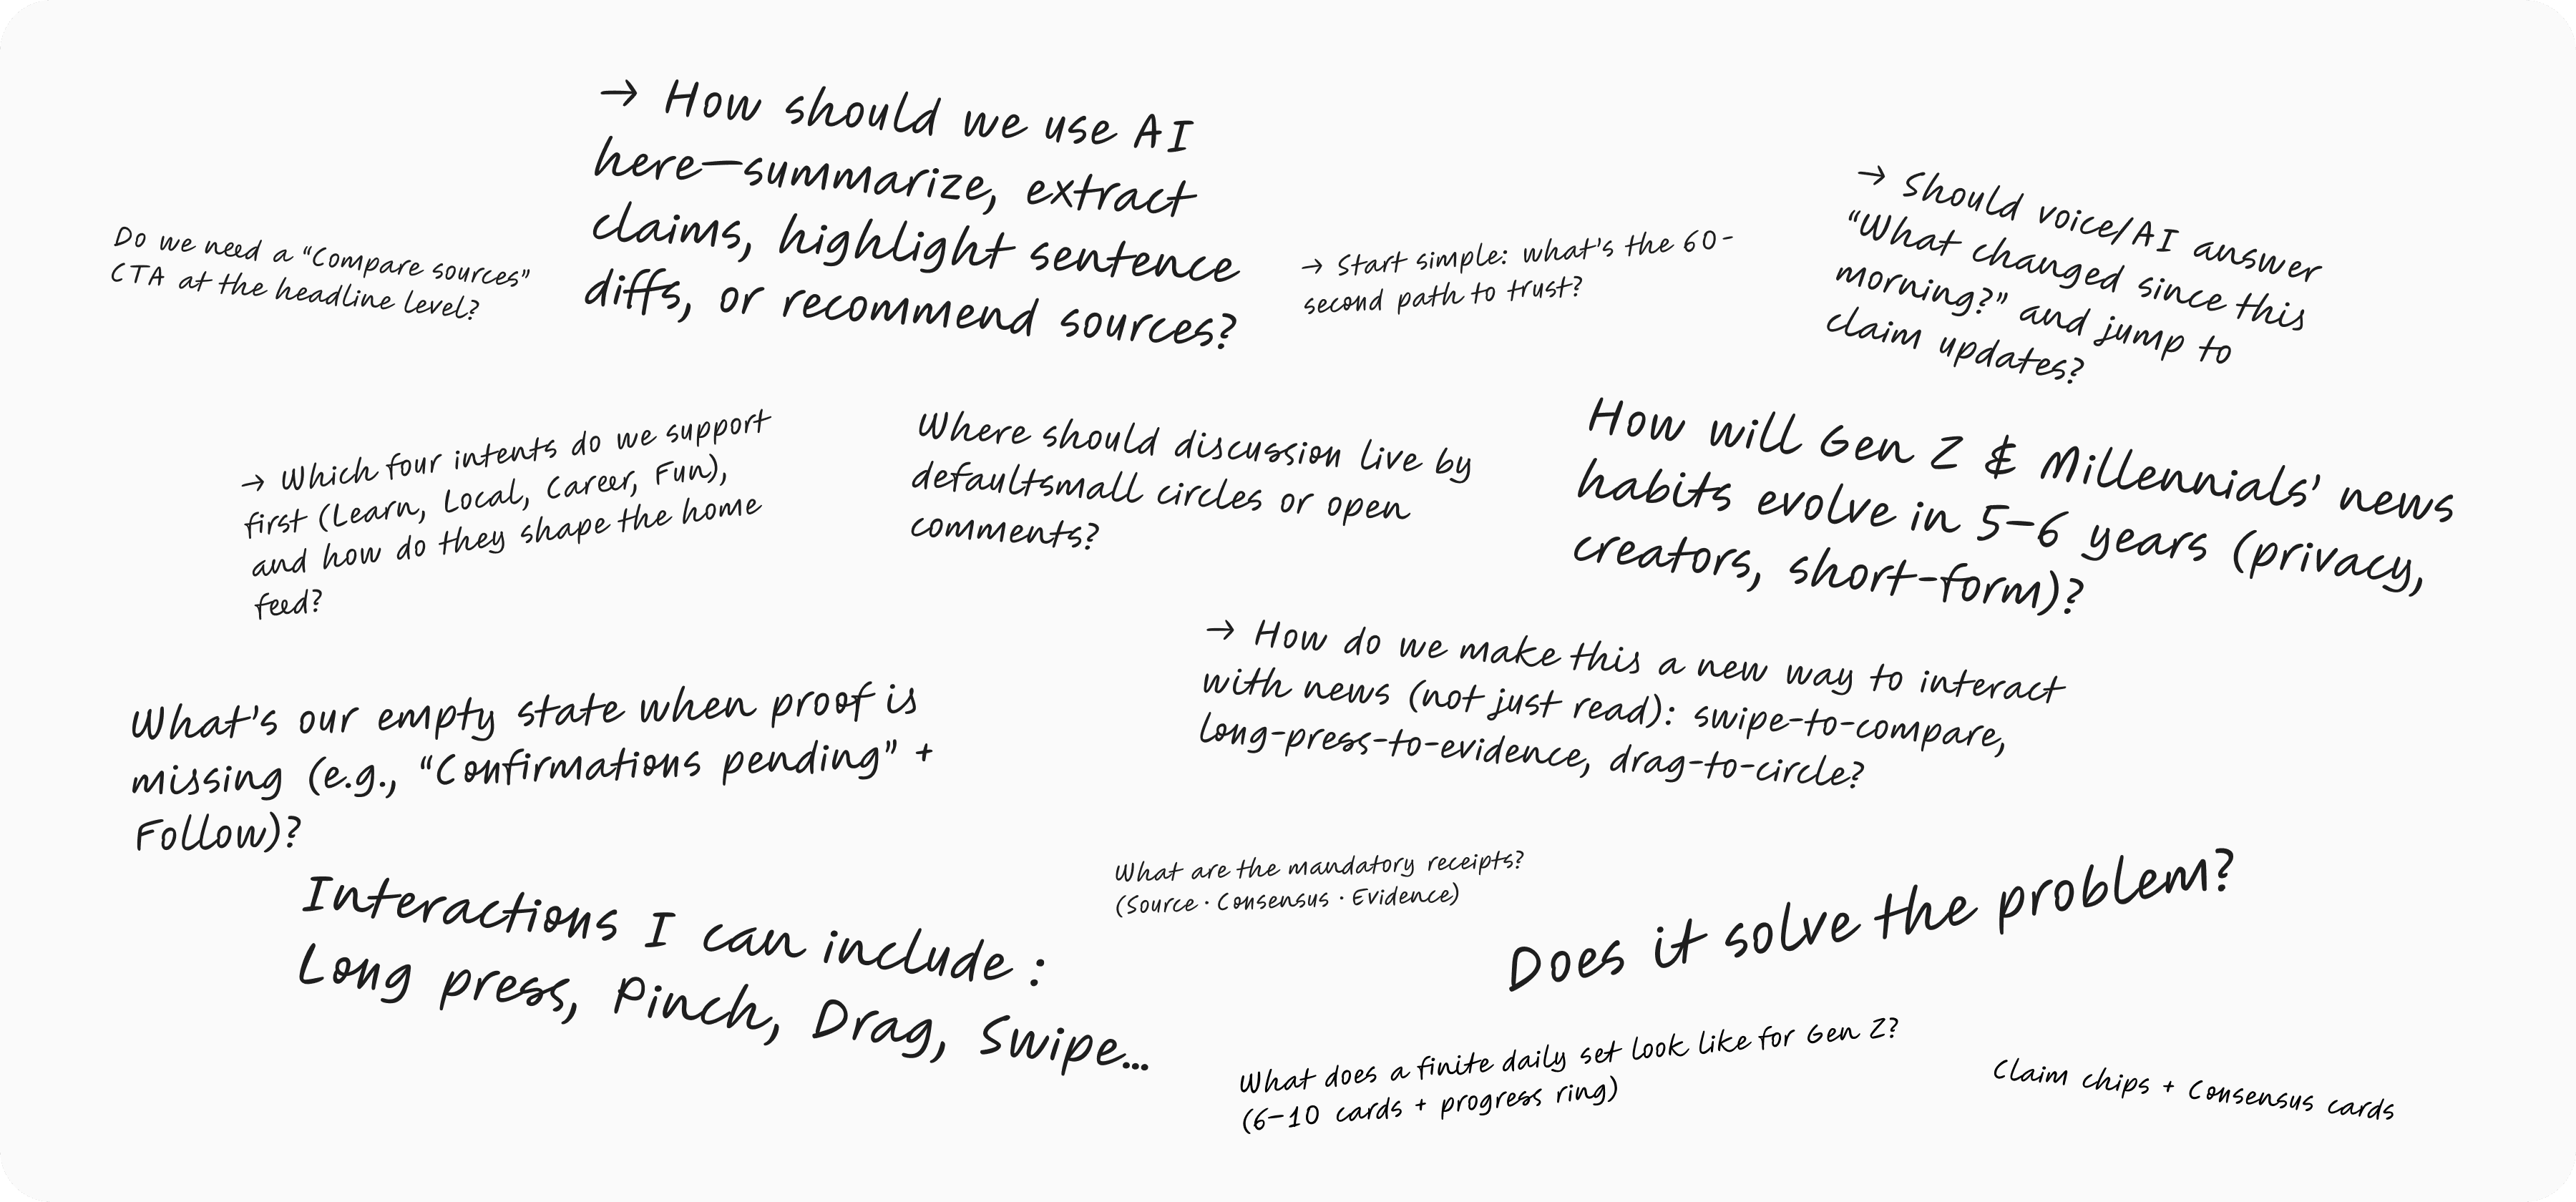 → How should we use AI
here—summarize, extract
claims, highlight sentence
diffs, or recommend sources?
Do we need a “Compare sources”
CTA at the headline level?
→ Start simple: what's the 60-
second path to trust?
→ Should voice/AI answer
“What changed since this
morning?” and jump to
claim updates?
→ Which four intents do we support
first (Learn, Local, Career, Fun),
and how do they shape the home
feed?
Where should discussion live by
defaultsmall circles or open
comments?
How will Gen Z & Millennials' news
habits evolve in 5–6 years (privacy,
creators, short-form)?
→ How do we make this a new way to interact
with news (not just read): swipe-to-compare,
long-press-to-evidence, drag-to-circle?
What's our empty state when proof is
missing (e.g., “Confirmations pending” +
Follow)?
Interactions I can include :
Long press, Pinch, Drag, Swipe...
What are the mandatory receipts?
(Source · Consensus · Evidence)
Does it solve the problem?
What does a finite daily set look like for Gen Z?
(6–10 cards + progress ring)
Claim chips + Consensus cards